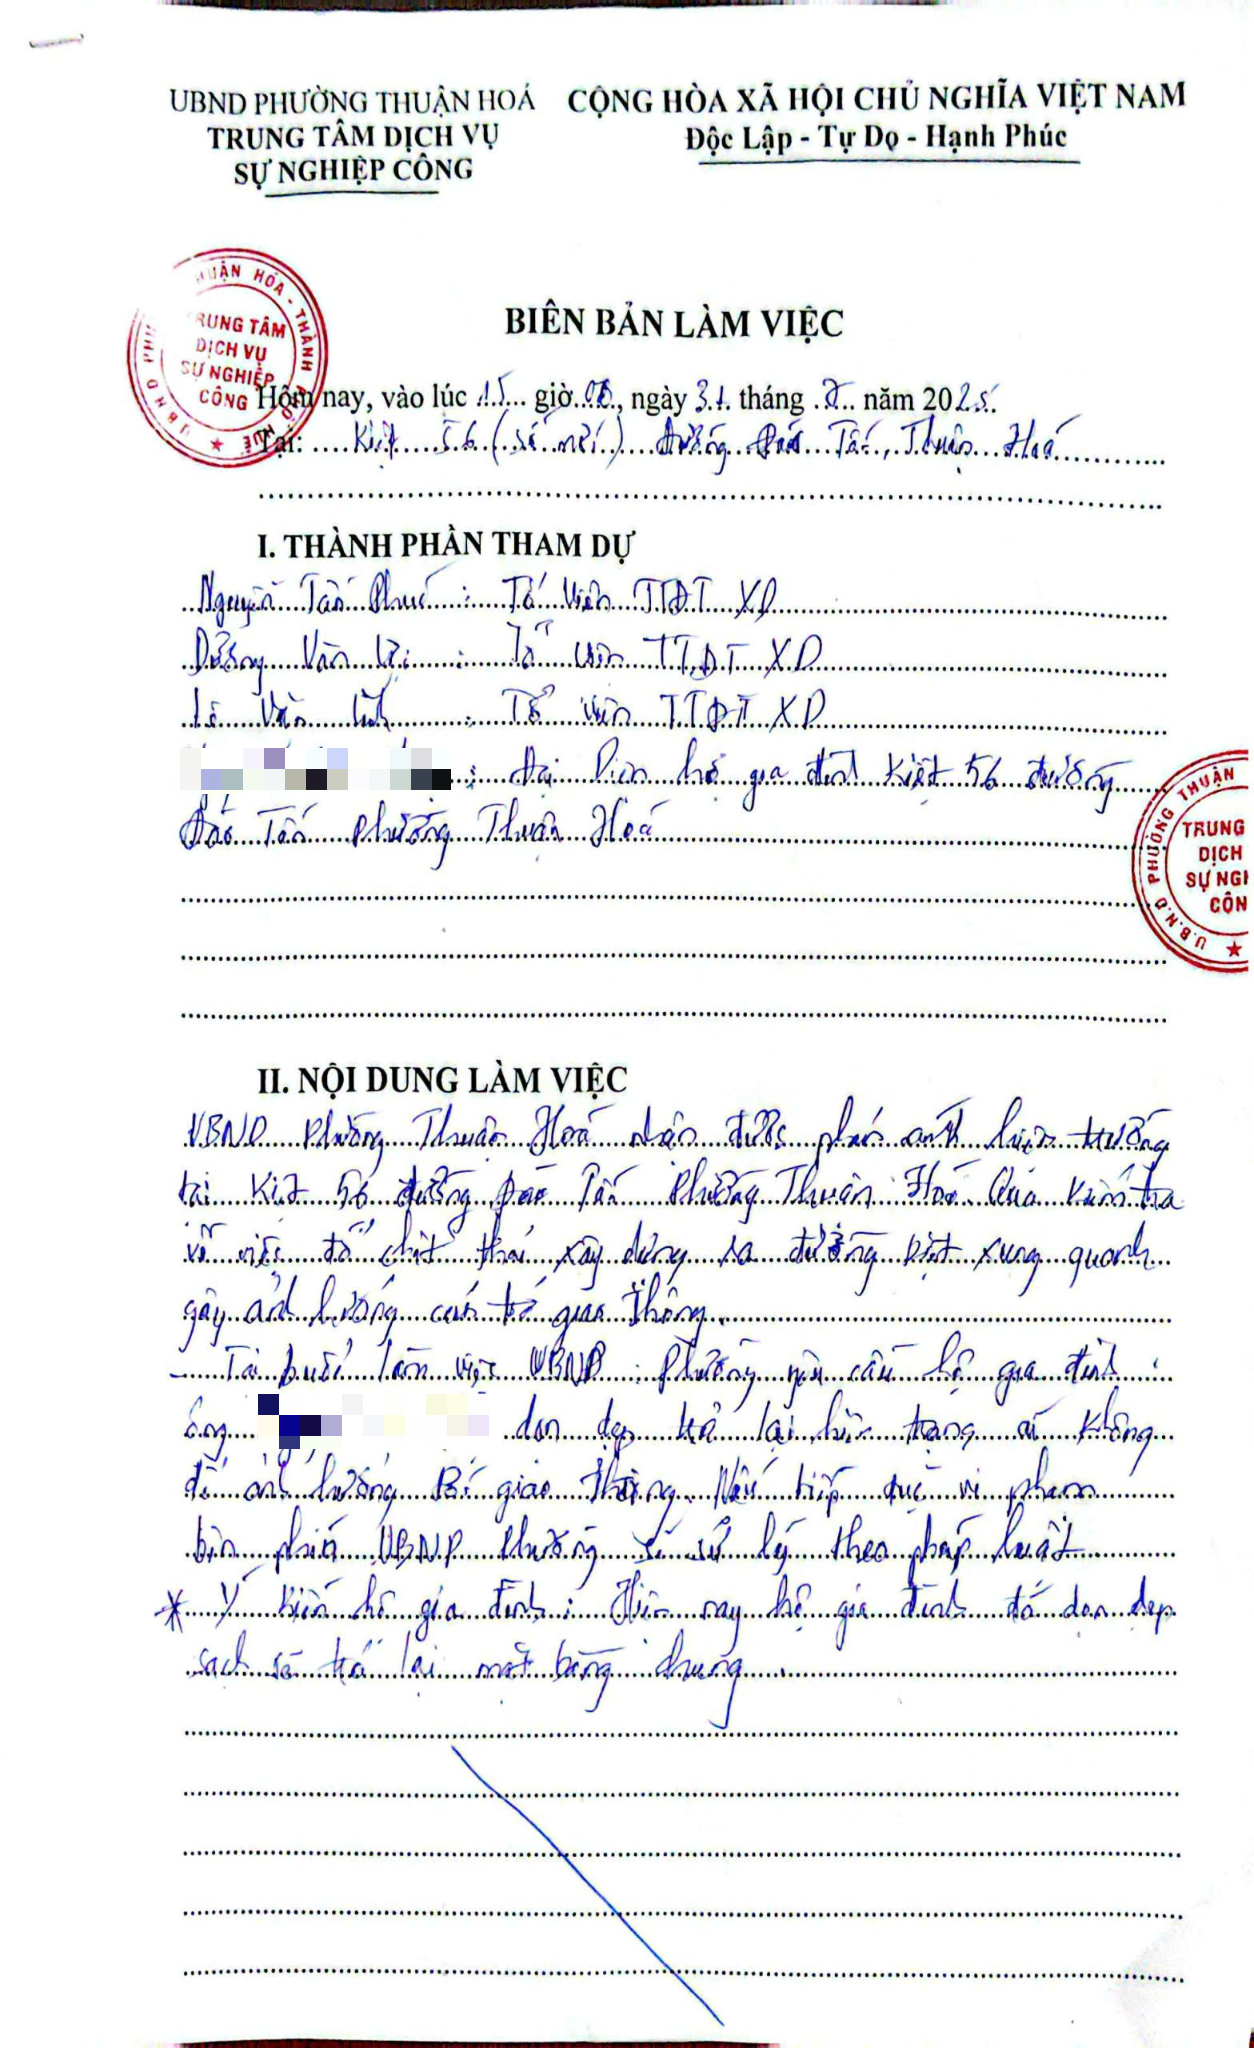 UBND PHƯỜNG THUẬN HOÁ
TRUNG TÂM DỊCH VỤ
SỰ NGHIỆP CÔNG
CỘNG HÒA XÃ HỘI CHỦ NGHĨA VIỆT NAM
Độc Lập - Tự Do - Hạnh Phúc
HUẬN HÓA - THÀNH PHỐ HUẾ ★ U.B.N.D PHƯ
TRUNG TÂM
DỊCH VỤ
SỰ NGHIỆP
CÔNG
BIÊN BẢN LÀM VIỆC
Hôm nay, vào lúc 15 giờ 00, ngày 31 tháng 7 năm 2025.
Tại: Kiệt 56 (số mới) đường Đào Tấn, Thuận Hoá
I. THÀNH PHẦN THAM DỰ
Nguyễn Tấn Phúc : Tổ viên TTĐT XD
Dương Văn : Tổ viên TTĐT XD
Lê Văn : Tổ viên TTĐT XD
: Đại Diện hộ gia đình Kiệt 56 đường
Đào Tấn phường Thuận Hoá
U.B.N.D PHƯỜNG THUẬN
TRUNG
DỊCH
SỰ NGH
CÔN
II. NỘI DUNG LÀM VIỆC
UBND Phường Thuận Hoá nhận được phản ánh hiện trường
tại Kiệt 56 đường Đào Tấn Phường Thuận Hoá Qua kiểm tra
về việc đổ chất thải xây dựng ra đường kiệt xung quanh
gây ảnh hưởng cản trở giao thông.
- Tại buổi làm việc UBND Phường yêu cầu hộ gia đình :
ông dọn dẹp trả lại hiện trạng không
để ảnh hưởng giao thông. Nếu tiếp tục vi phạm
UBND phường sẽ xử lý theo pháp luật
* Ý kiến hộ gia đình : Hiện nay hộ gia đình đã dọn dẹp
sạch sẽ trả lại mặt bằng chung.